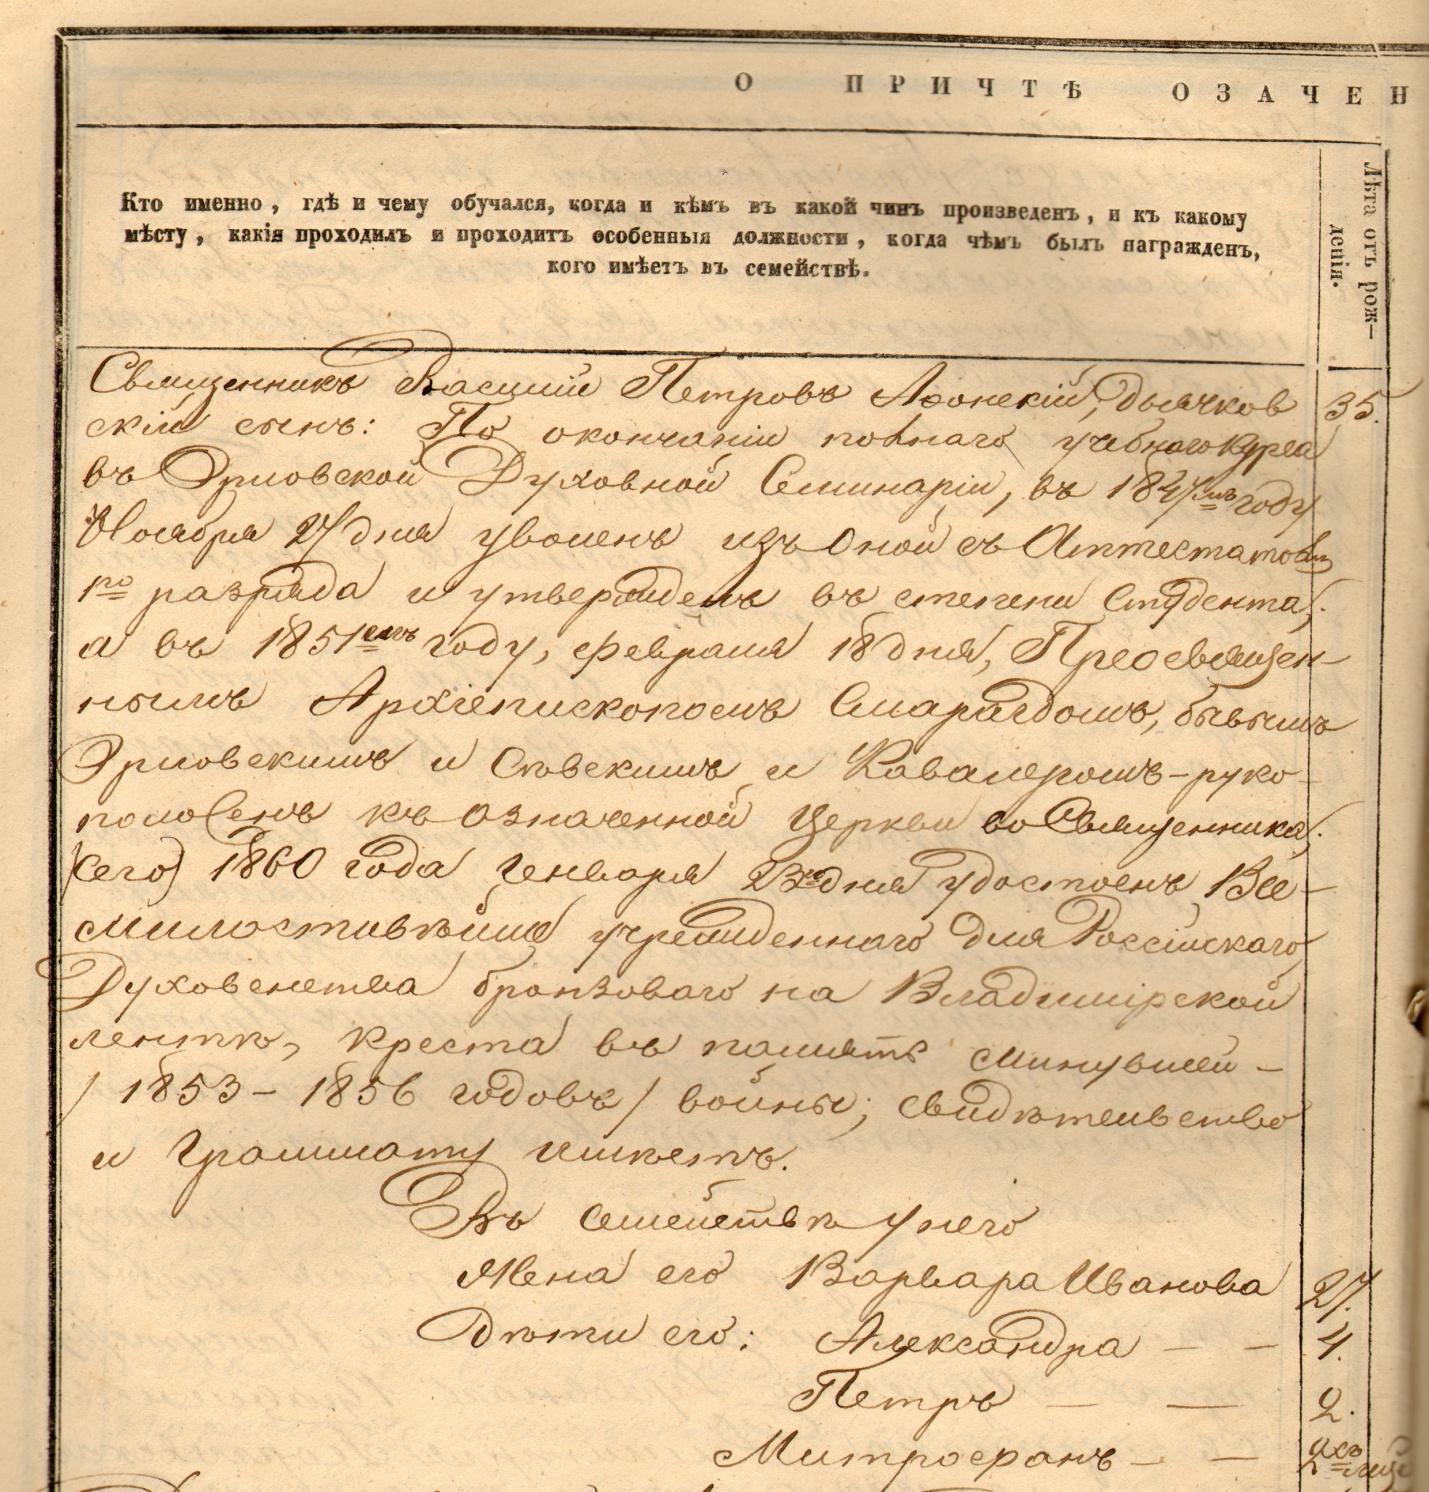 О ПРИЧТѢ ОЗАЧЕН
Кто именно, гдѣ и чему обучался, когда и кѣмъ въ какой чинъ произведенъ, и къ какому
мѣсту, какія проходилъ и проходитъ особенныя должности, когда чѣмъ былъ награжденъ,
кого имѣетъ въ семействѣ.
Лѣта отъ рож-
денія.
Священникъ Василій Петровъ Аѳонскій, дьячков 35.
скій сынъ: По окончаніи полнаго учебнаго курса
въ Орловской Духовной Семинаріи, въ 1847мъ году
Ноября 27 дня уволенъ изъ оной съ Аттестатомъ
1го разряда и утвержденъ въ степени Студента;
а въ 1851омъ году, февраля 18 дня, Преосвящен-
нымъ Архіепископомъ Смарагдомъ, бывшимъ
Орловскимъ и Сѣвскимъ и Кавалеромъ-руко-
положенъ къ означенной Церкви во Священника;
(сего) 1860 года Генваря 23го дня удостоенъ Все-
милостивѣйше учрежденнаго для Россійскаго
Духовенства бронзоваго на Владимірской
лентѣ, креста въ память минувшей -
/ 1853 - 1856 годовъ / войны; свидѣтельство
и Грамматту имѣетъ.
Въ семействѣ у него
Жена его Варвара Иванова 27.
Дѣти его: Александра - - 4.
Петръ - - 2.
Митрофанъ - - 2хъ